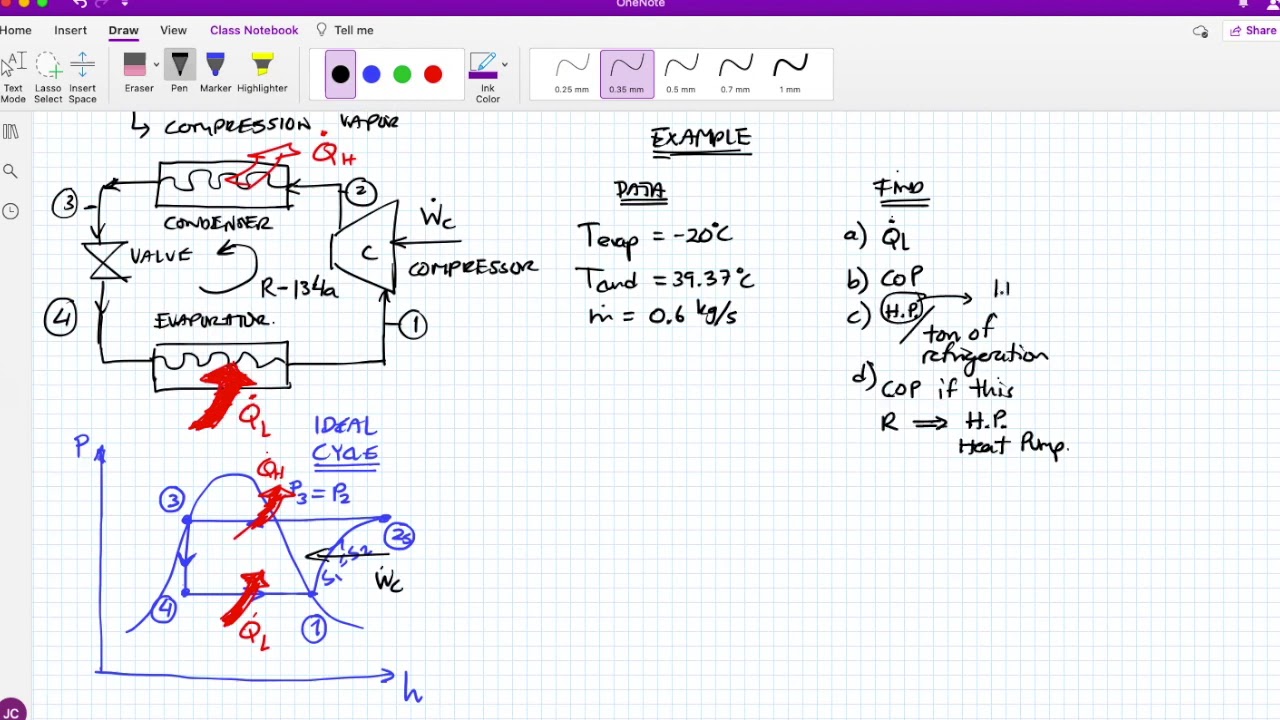 OneNote
Home Insert Draw View Class Notebook Tell me
Share
Text Mode
Lasso Select
Insert Space
Eraser
Pen
Marker
Highlighter
Ink Color
0.25 mm
0.35 mm
0.5 mm
0.7 mm
1 mm
↳ COMPRESSION VAPOR
Q̇H
③
②
CONDENSER
Ẇc
VALVE
C
COMPRESSOR
R-134a
④
EVAPORATOR.
①
Q̇L
IDEAL
CYCLE
P
Q̇H
③
P3 = P2
2s
Ẇc
④
Q̇L
①
h
EXAMPLE
DATA
Tevap = -20°C
Tcond = 39.37°C
ṁ = 0.6 kg/s
FIND
a) Q̇L
b) COP
c) H.P. / ton of
refrigeration
1.1
d) COP if this
R ⟹ H.P.
Heat Pump.
JC